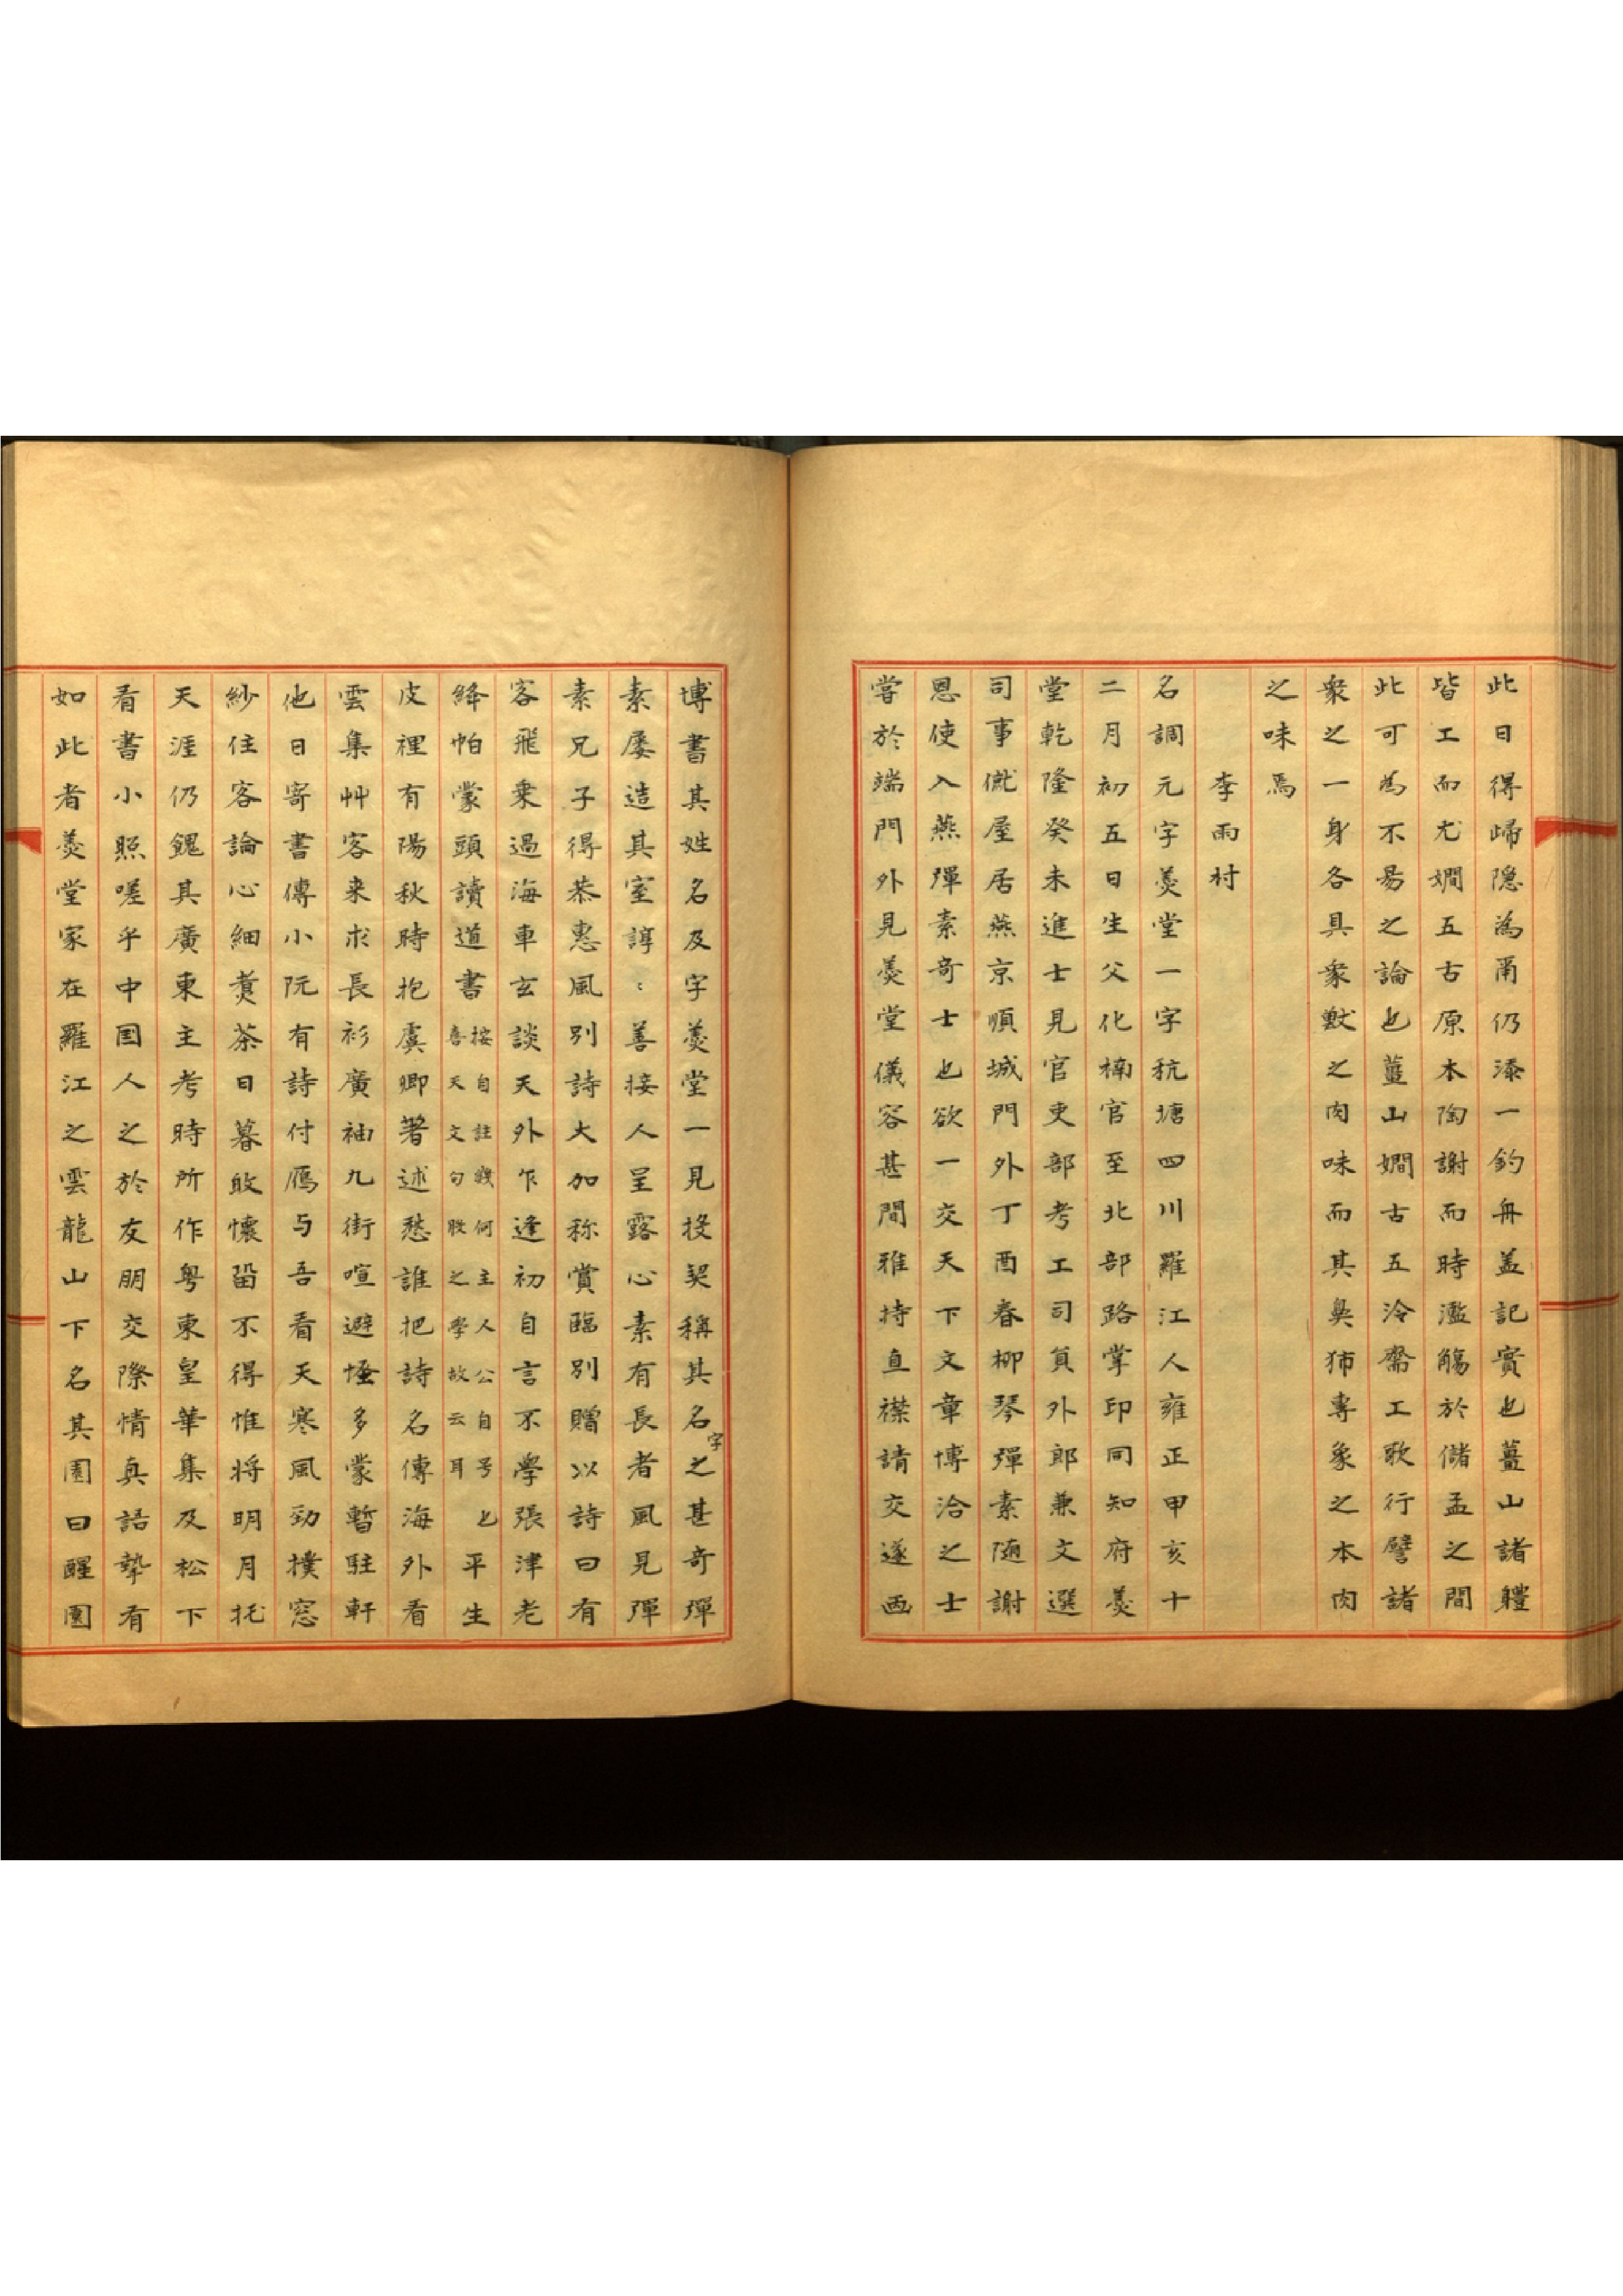 此日得歸隐為甬仍添一釣舟盖記實也薑山諸軆
皆工而尤嫺五古原本陶謝而時濫觴於儲孟之間
此可為不易之論也薑山嫺古五泠齋工歌行譬諸
衆之一身各具衆獸之肉味而其鼻㹃專象之本肉
之味焉
李雨村
名調元字羹堂一字秔塘四川羅江人雍正甲亥十
二月初五日生父化楠官至北部路掌印同知府羹
堂乾隆癸未進士見官吏部考工司貟外郎兼文選
司事僦屋居燕京順城門外丁酉春柳琴彈素随謝
恩使入燕彈素奇士也欲一交天下文章博洽之士
嘗於端門外見羹堂儀容甚閒雅持直襟請交遂画
博書其姓名及字羹堂一見投契稱其名字之甚奇彈
素屡造其室諄:善接人呈露心素有長者風見彈
素兄子得恭惠風別詩大加称賞臨別贈以詩曰有
客飛乗過海車玄談天外乍逢初自言不學張津老
絳帕蒙頭讀道書按自註幾何主人公自号也喜天文句股之學故云耳平生
皮裡有陽秋時抱虞卿著述愁誰把詩名傳海外看
雲集艸客来求長衫廣袖九街喧避㥿多蒙暫駐軒
他日寄書傳小阮有詩付鴈与吾看天寒風勁撲窓
紗住客論心細煑茶日暮敢懷畱不得惟将明月托
天涯仍餽其廣東主考時所作粤東皇華集及松下
看書小照嗟乎中国人之於友朋交際情真語摯有
如此者羹堂家在羅江之雲龍山下名其園曰醒園